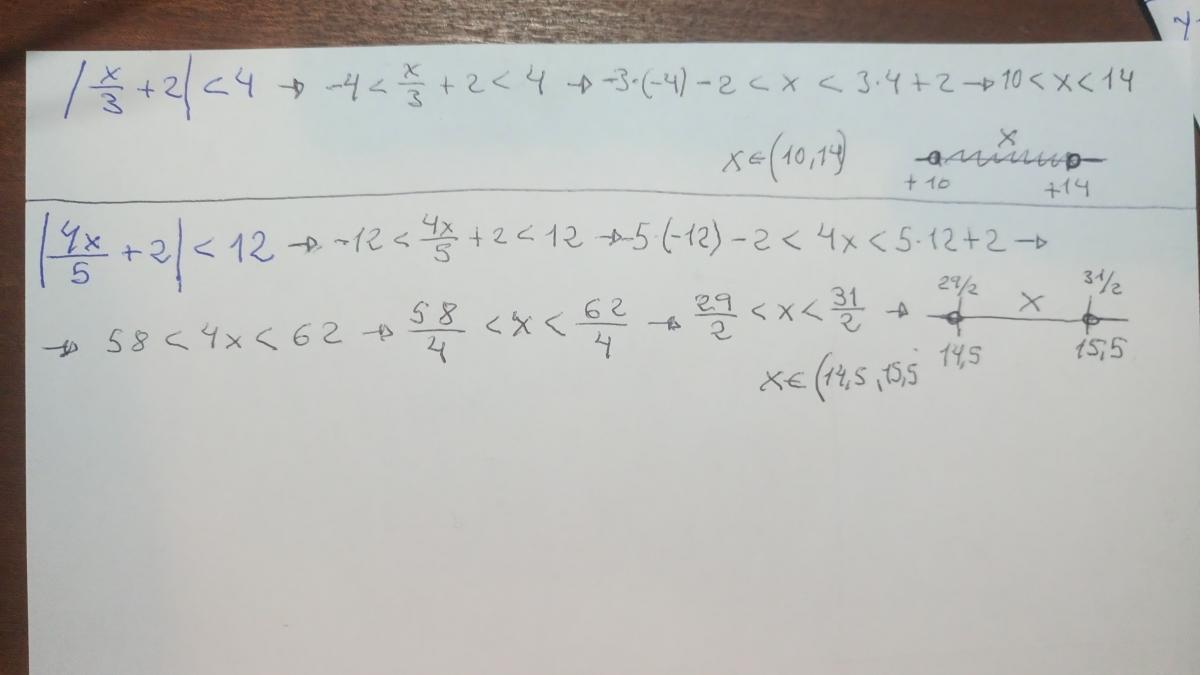 |x/3 + 2| < 4 → -4 < x/3 + 2 < 4 → -3·(-4) - 2 < x < 3·4 + 2 → 10 < x < 14
x ∈ (10, 14) x
+10 +14
|4x/5 + 2| < 12 → -12 < 4x/5 + 2 < 12 → -5·(-12) - 2 < 4x < 5·12 + 2 →
→ 58 < 4x < 62 → 58/4 < x < 62/4 → 29/2 < x < 31/2 → 29/2 x 31/2
14,5 15,5
x ∈ (14,5 , 15,5